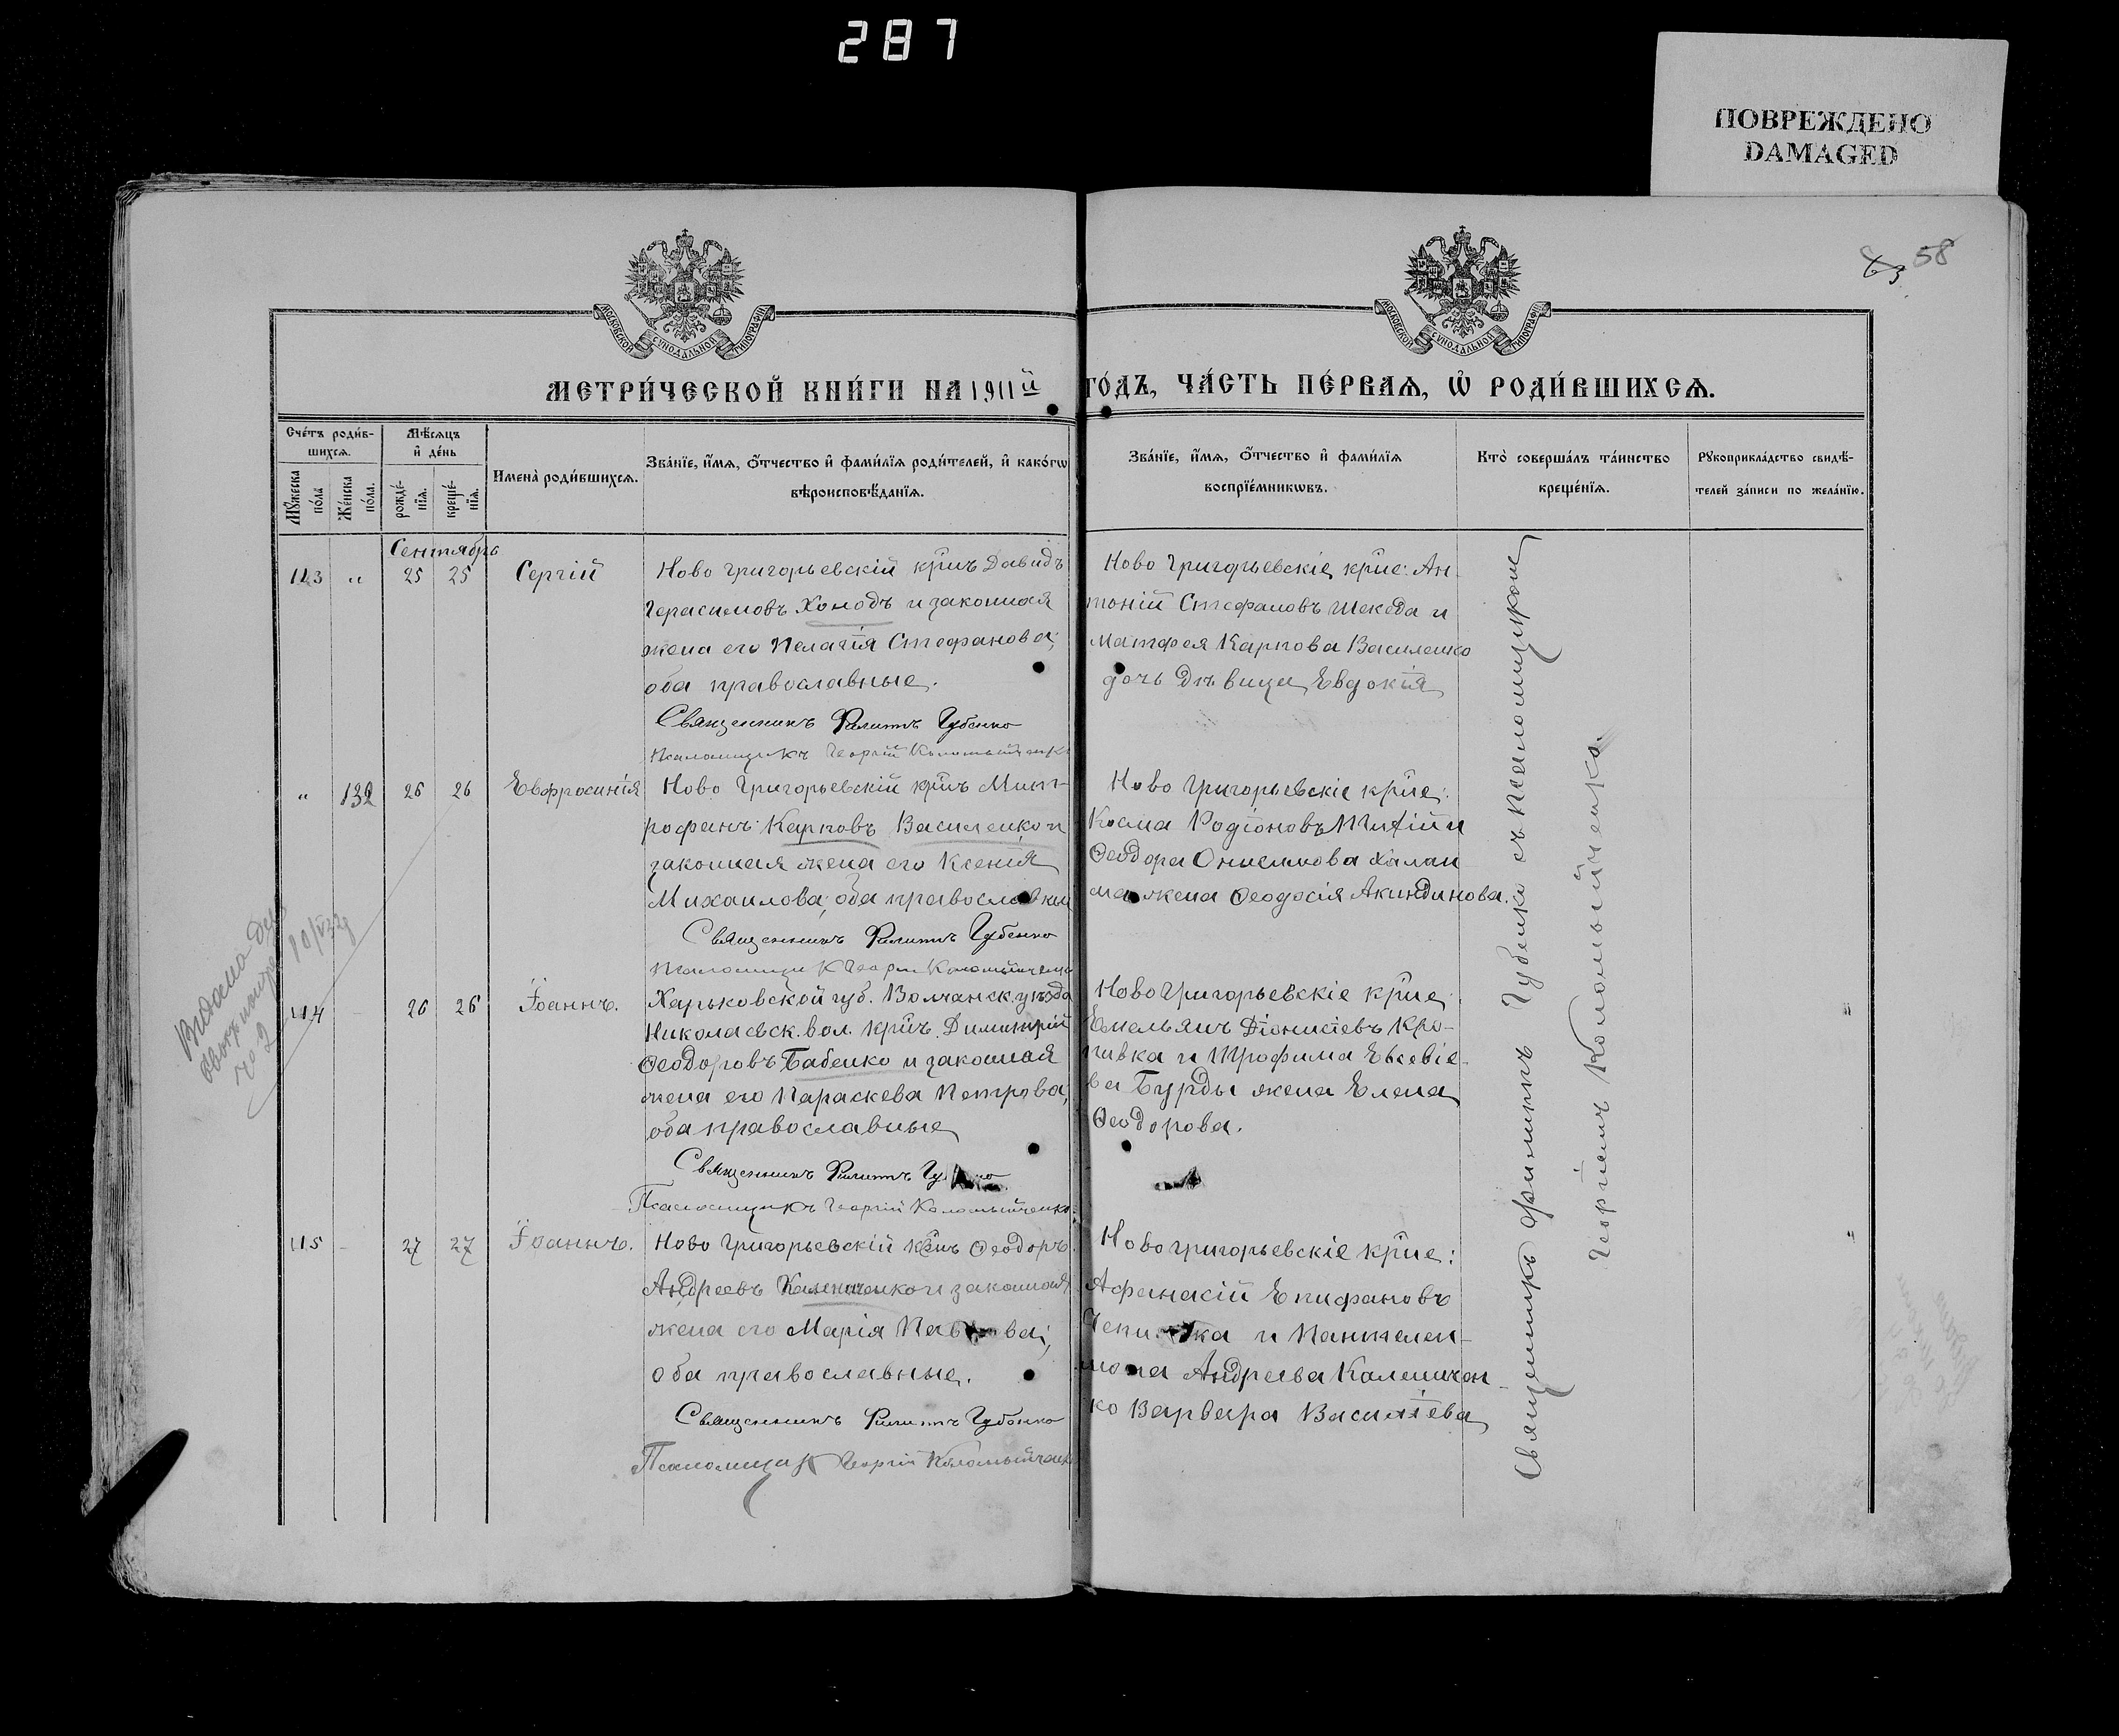 287
ПОВРЕЖДЕНО
DAMAGED
58
МОСКОВСКОЙ СУНОДАЛЬНОЙ ТИПОГРАФІИ
МОСКОВСКОЙ СУНОДАЛЬНОЙ ТИПОГРАФІИ
МЕТРИ́ЧЕСКОЙ КНИ́ГИ НА 1911й ГО́ДЪ, ЧА́СТЬ ПЕ́РВАѦ, Ѡ҆ РОДИ́ВШИХСѦ.
Сче́тъ роди́в-
шихсѧ.
Мꙋ́жеска по́ла
Же́нска по́ла.
Мѣ́сѧцъ
и҆ де́нь
рожде́-
нїѧ.
креще́-
нїѧ.
Имена̀ роди́вшихсѧ.
Зва́нїе, и҆́мѧ, ѻ҆́тчество и҆ фами́лїѧ роди́телей, и҆ како́гѡ
вѣроисповѣ́данїѧ.
Зва́нїе, и҆́мѧ, ѻ҆́тчество и҆ фами́лїѧ
воспрїе́мникѡвъ.
Кто̀ соверша́лъ та́инство
креще́нїѧ.
Рꙋкоприкла́дство свидѣ́-
телей за́писи по жела́нїю.
Сентябрь
113 " 25 25 Сергій
Ново Григорьевскій кр̃нъ Давидъ
Герасимовъ Холодъ и законная
жена его Пелагія Стефанова;
оба православные.
Священникъ Филиппъ Губенко
Псаломщикъ Георгій Коломыйченко
Ново Григорьевскіе кр̃не: Ан-
тоній Стефановъ Шекеда и
Матфея Карпова Василенко
дочь дѣвица Евдокія
" 132 26 26 Евфросинія
Ново Григорьевскій кр̃нъ Мит-
рофанъ Карповъ Василенко и
законная жена его Ксенія
Михаилова; оба православные
Священникъ Филиппъ Губенко
Псаломщикъ Георгій Коломыйченко
Ново Григорьевскіе кр̃не:
Косма Родіоновъ и
Ѳеодора Онисимова
жена Ѳеодосія Акиндинова.
114 26 26 Іоаннъ.
Харьковской губ. Волчанск. уѣзда
Николаевск. вол. кр̃нъ Димитрій
Ѳеодоровъ Бабенко и законная
жена его Параскева Петрова;
оба православные
Священникъ Филиппъ
Псаломщикъ Георгій Коломыйченко
Ново Григорьевскіе кр̃не
Емельянъ Діонисіевъ Кро-
пивка и Трофима Евсевіе-
ва Бурды жена Елена
Ѳеодорова.
115 27 27 Іоаннъ.
Ново Григорьевскій кр̃нъ Ѳеодоръ
Андреевъ Калениченко и законная
жена его Марія
оба православные.
Священникъ Филиппъ Губенко
Псаломщикъ Георгій Коломыйченко
Ново Григорьевскіе кр̃не:
Афанасій Епифановъ
и Пантелей-
мона Андреева Калиничен-
ко Варвара Василіева
Священникъ Филиппъ Губенко съ псаломщикомъ
Георгіемъ Коломыйченко.